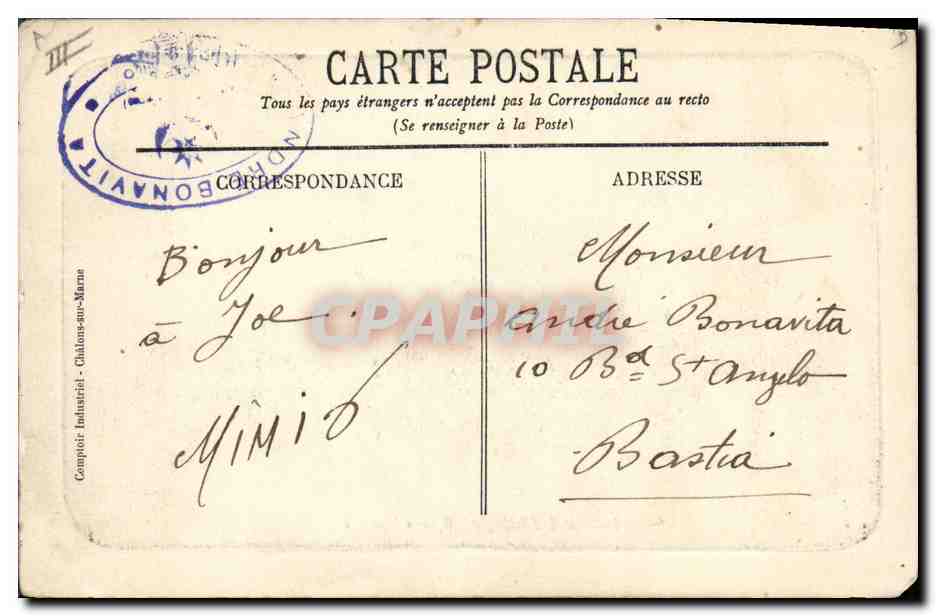 III
CARTE POSTALE
Tous les pays étrangers n'acceptent pas la Correspondance au recto
(Se renseigner à la Poste)
NDRÉ BONAVITA
CORRESPONDANCE
ADRESSE
Bonjour
à Joe.
MIMI
Monsieur
André Bonavita
10 Bd St Angelo
Bastia
Comptoir Industriel - Châlons-sur-Marne
CPAPHIL